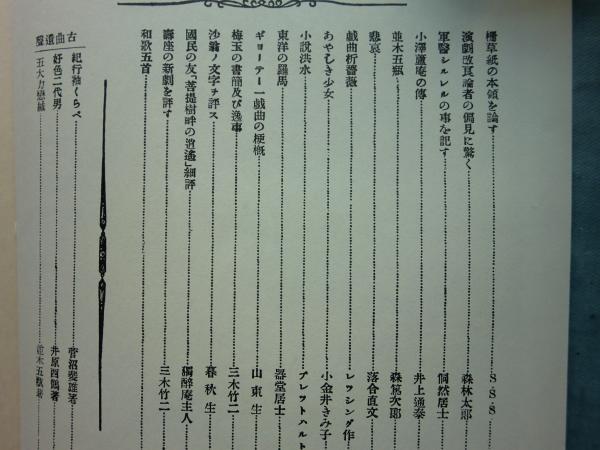 柵草紙の本領を論ず……S・S・S
演劇改良論者の偏見に驚く……森林太郎
軍醫シルレルの事を記す……侗然居士
小澤蘆庵の傳……井上通泰
並木五瓶……森篤次郎
悲哀……落合直文
戲曲折薔薇……レツシング作
あやしき少女……小金井きみ子
小說洪水……ブレツトハルト
東洋の羅馬……器堂居士
ギヨーテー一戲曲の梗槪……山東生
梅玉の書簡及び逸事……三木竹二
沙翁ノ文字ヲ評ス……春秋生
國民の友「菩提樹畔の逍遙」細評……獨醉庵主人
壽座の新劇を評す……三木竹二
和歌五首
古曲遺聲
紀行袖くらべ……菅沼斐雄著
好色二代男……井原西鶴著
五大力戀緘……並木五瓶著